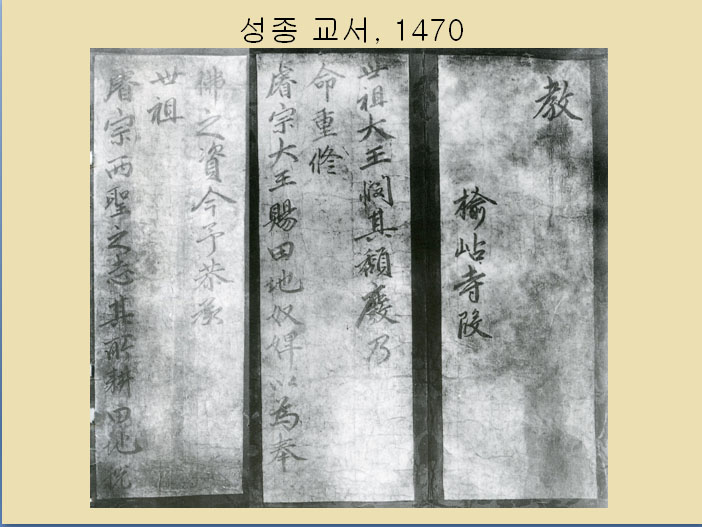 성종 교서, 1470
教
楡岾寺段
世祖大王憫其頹廢乃
命重修
睿宗大王賜田地奴婢以為奉
佛之資今予恭承
世祖
睿宗両聖之志其所耕田地税